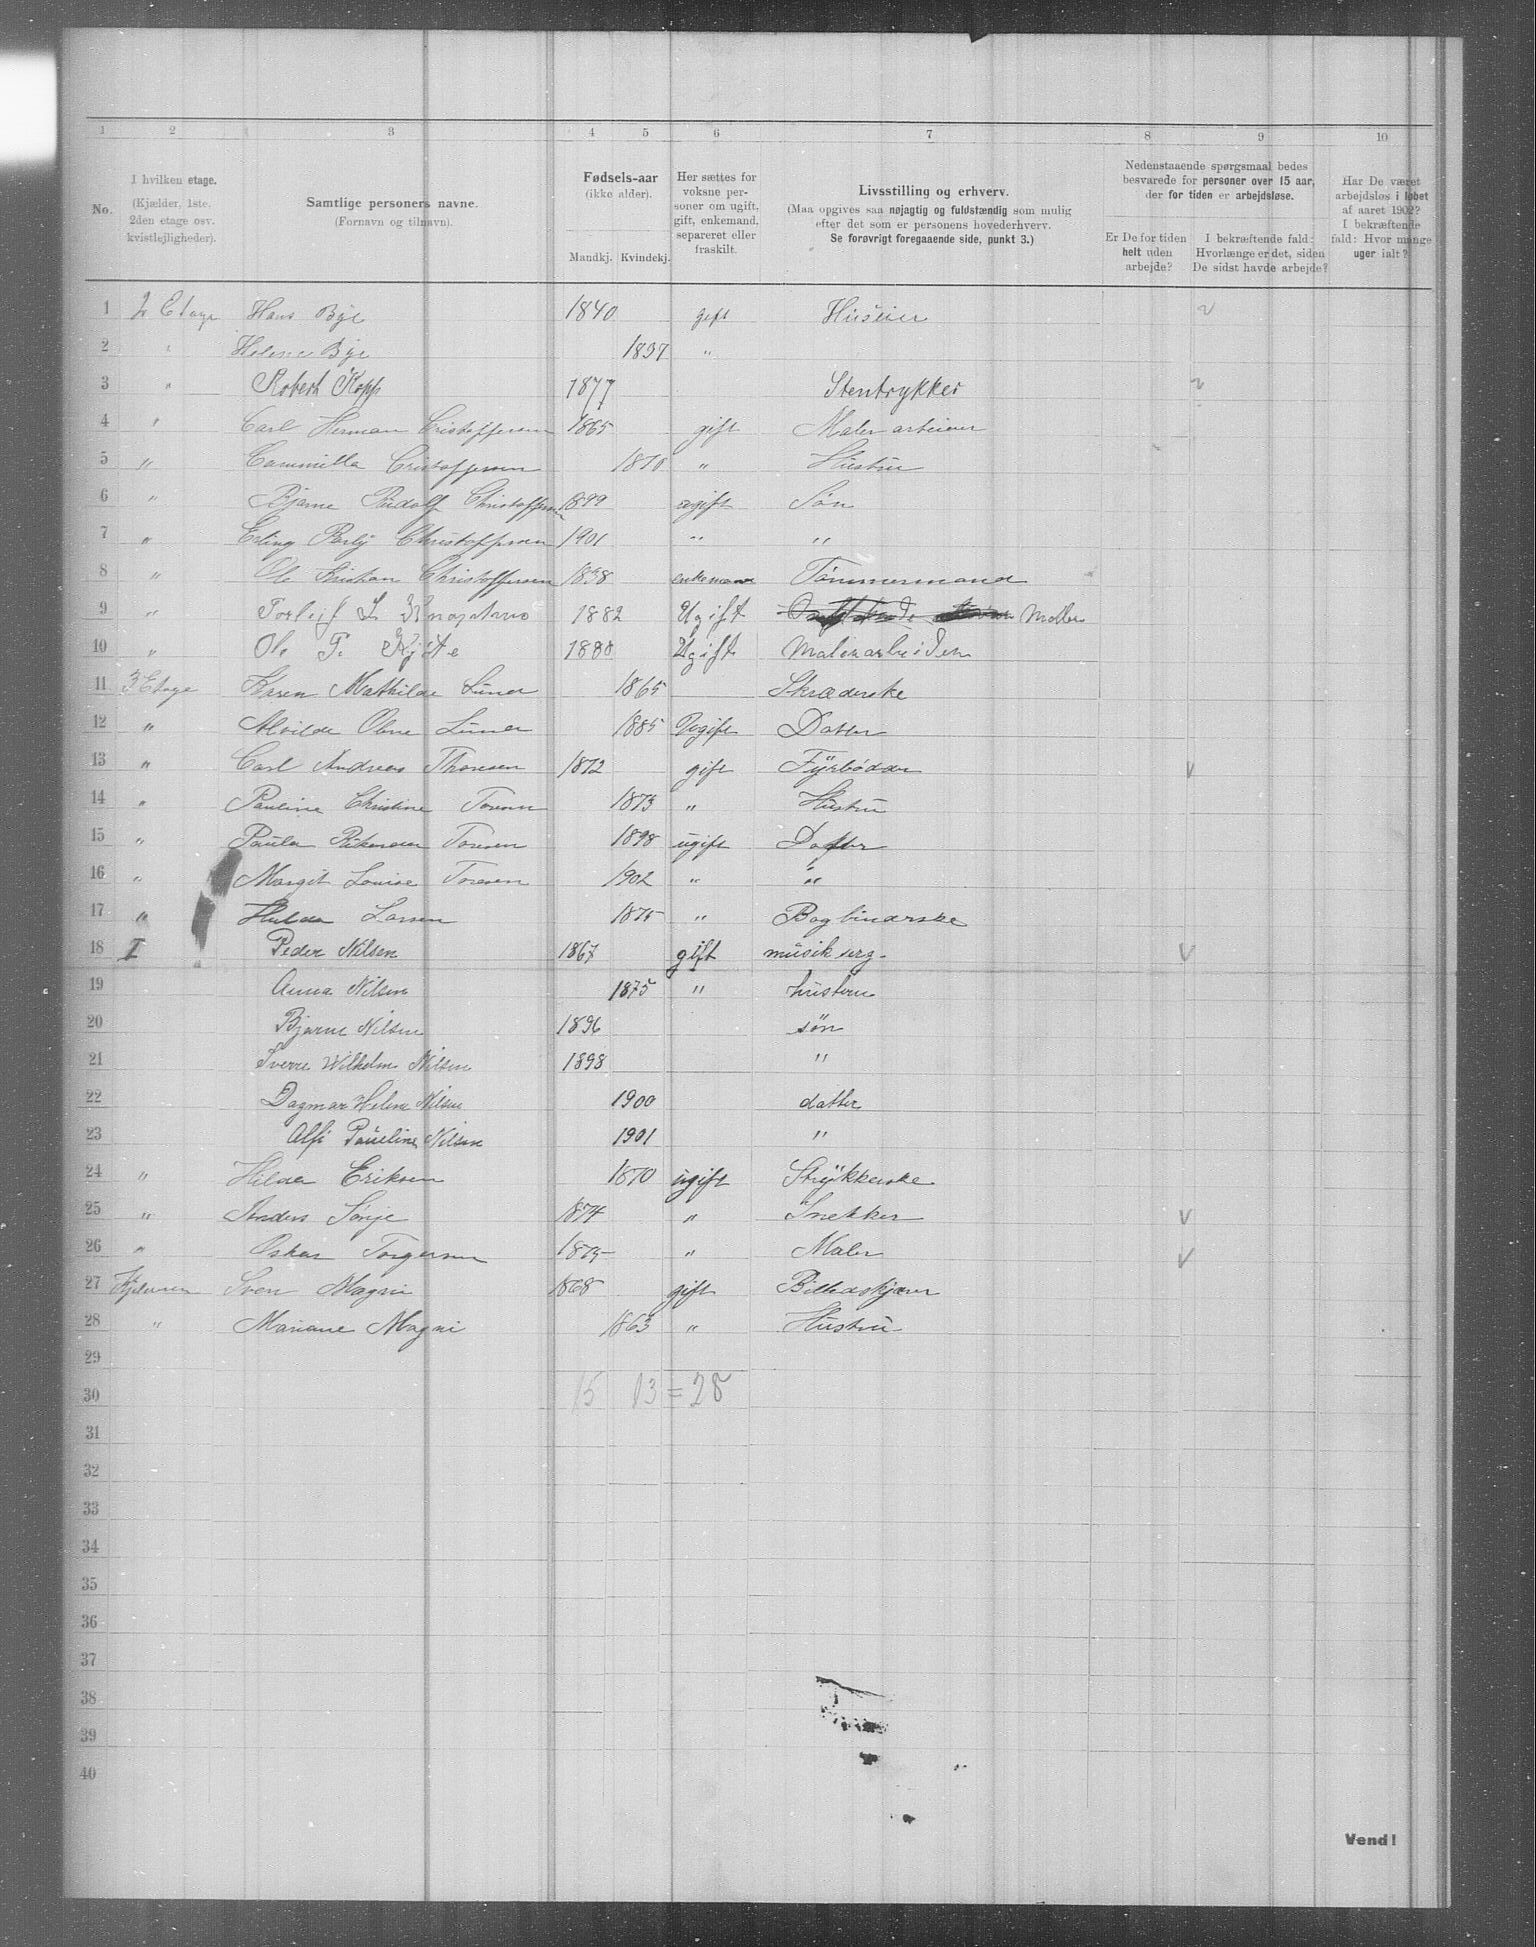 1 2 3 4 5 6 7 8 9 10
No.
I hvilken etage. (Kjælder, 1ste. 2den etage osv. kvistlejligheder).
Samtlige personers navne. (Fornavn og tilnavn).
Fødsels-aar (ikke alder). Mandkj. Kvindekj.
Her sættes for voksne personer om ugift, gift, enkemand, separeret eller fraskilt.
Livsstilling og erhverv. (Maa opgives saa nøjagtig og fuldstændig som mulig efter det som er personens hovederhverv. Se forøvrigt foregaaende side, punkt 3.)
Nedenstaaende spørgsmaal bedes besvarede for personer over 15 aar, der for tiden er arbejdsløse.
Er De for tiden helt uden arbejde?
I bekræftende fald: Hvorlænge er det, siden De sidst havde arbejde?
Har De været arbejdsløs i løbet af aaret 1902? I bekræftende fald: Hvor mange uger ialt?
1 2 Etage Hans Bye 1840 gift Huseier
2 " Helene Bye 1837 "
3 " Robert Kopp 1877 Stentrykker
4 " Carl Herman Cristoffersen 1865 gift Maler arbeier
5 " Cammilla Cristoffersen 1870 " Hustru
6 " Bjarne Rudolf Christoffersen 1899 ugift Søn
7 " Erling Christoffersen 1901 " "
8 " Ole Kristian Christoffersen 1838 enkemand Tømmermand
9 " Torleif L. 1882 Ugift Maller
10 " Ole T. 1880 Ugift Malerarbeider
11 3 Etage Karen Mathilde Lund 1865 Skræderske
12 " Alvilde Oline Lund 1885 Ugift Datter
13 " Carl Andreas Thoresen 1872 gift Fyrbødder v
14 " Pauline Christine Toresen 1873 " Hustru
15 " Paula Toresen 1898 ugift Datter
16 " Margit Louise Toresen 1902 " "
17 " Hulda Larsen 1875 " Bogbinderske
18 I Peder Nilsen 1867 gift musik serg. v
19 Anna Nilsen 1875 " hustru
20 Bjarne Nilsen 1896 søn
21 Sverre Wilhelm Nilsen 1898 "
22 Dagmar Helene Nilsen 1900 datter
23 Alfi Pauline Nilsen 1901 "
24 " Hilda Eriksen 1870 ugift Strykkerske
25 " Anders Sørge 1874 " Snekker v
26 " Oskar Torgersen 1875 " Maler v
27 Kjelderen Sven Magni 1868 gift Billedskjærer
28 " Mariane Magni 1863 " Hustru
29
30 15 13 = 28
31
32
33
34
35
36
37
38
39
40
Vend!